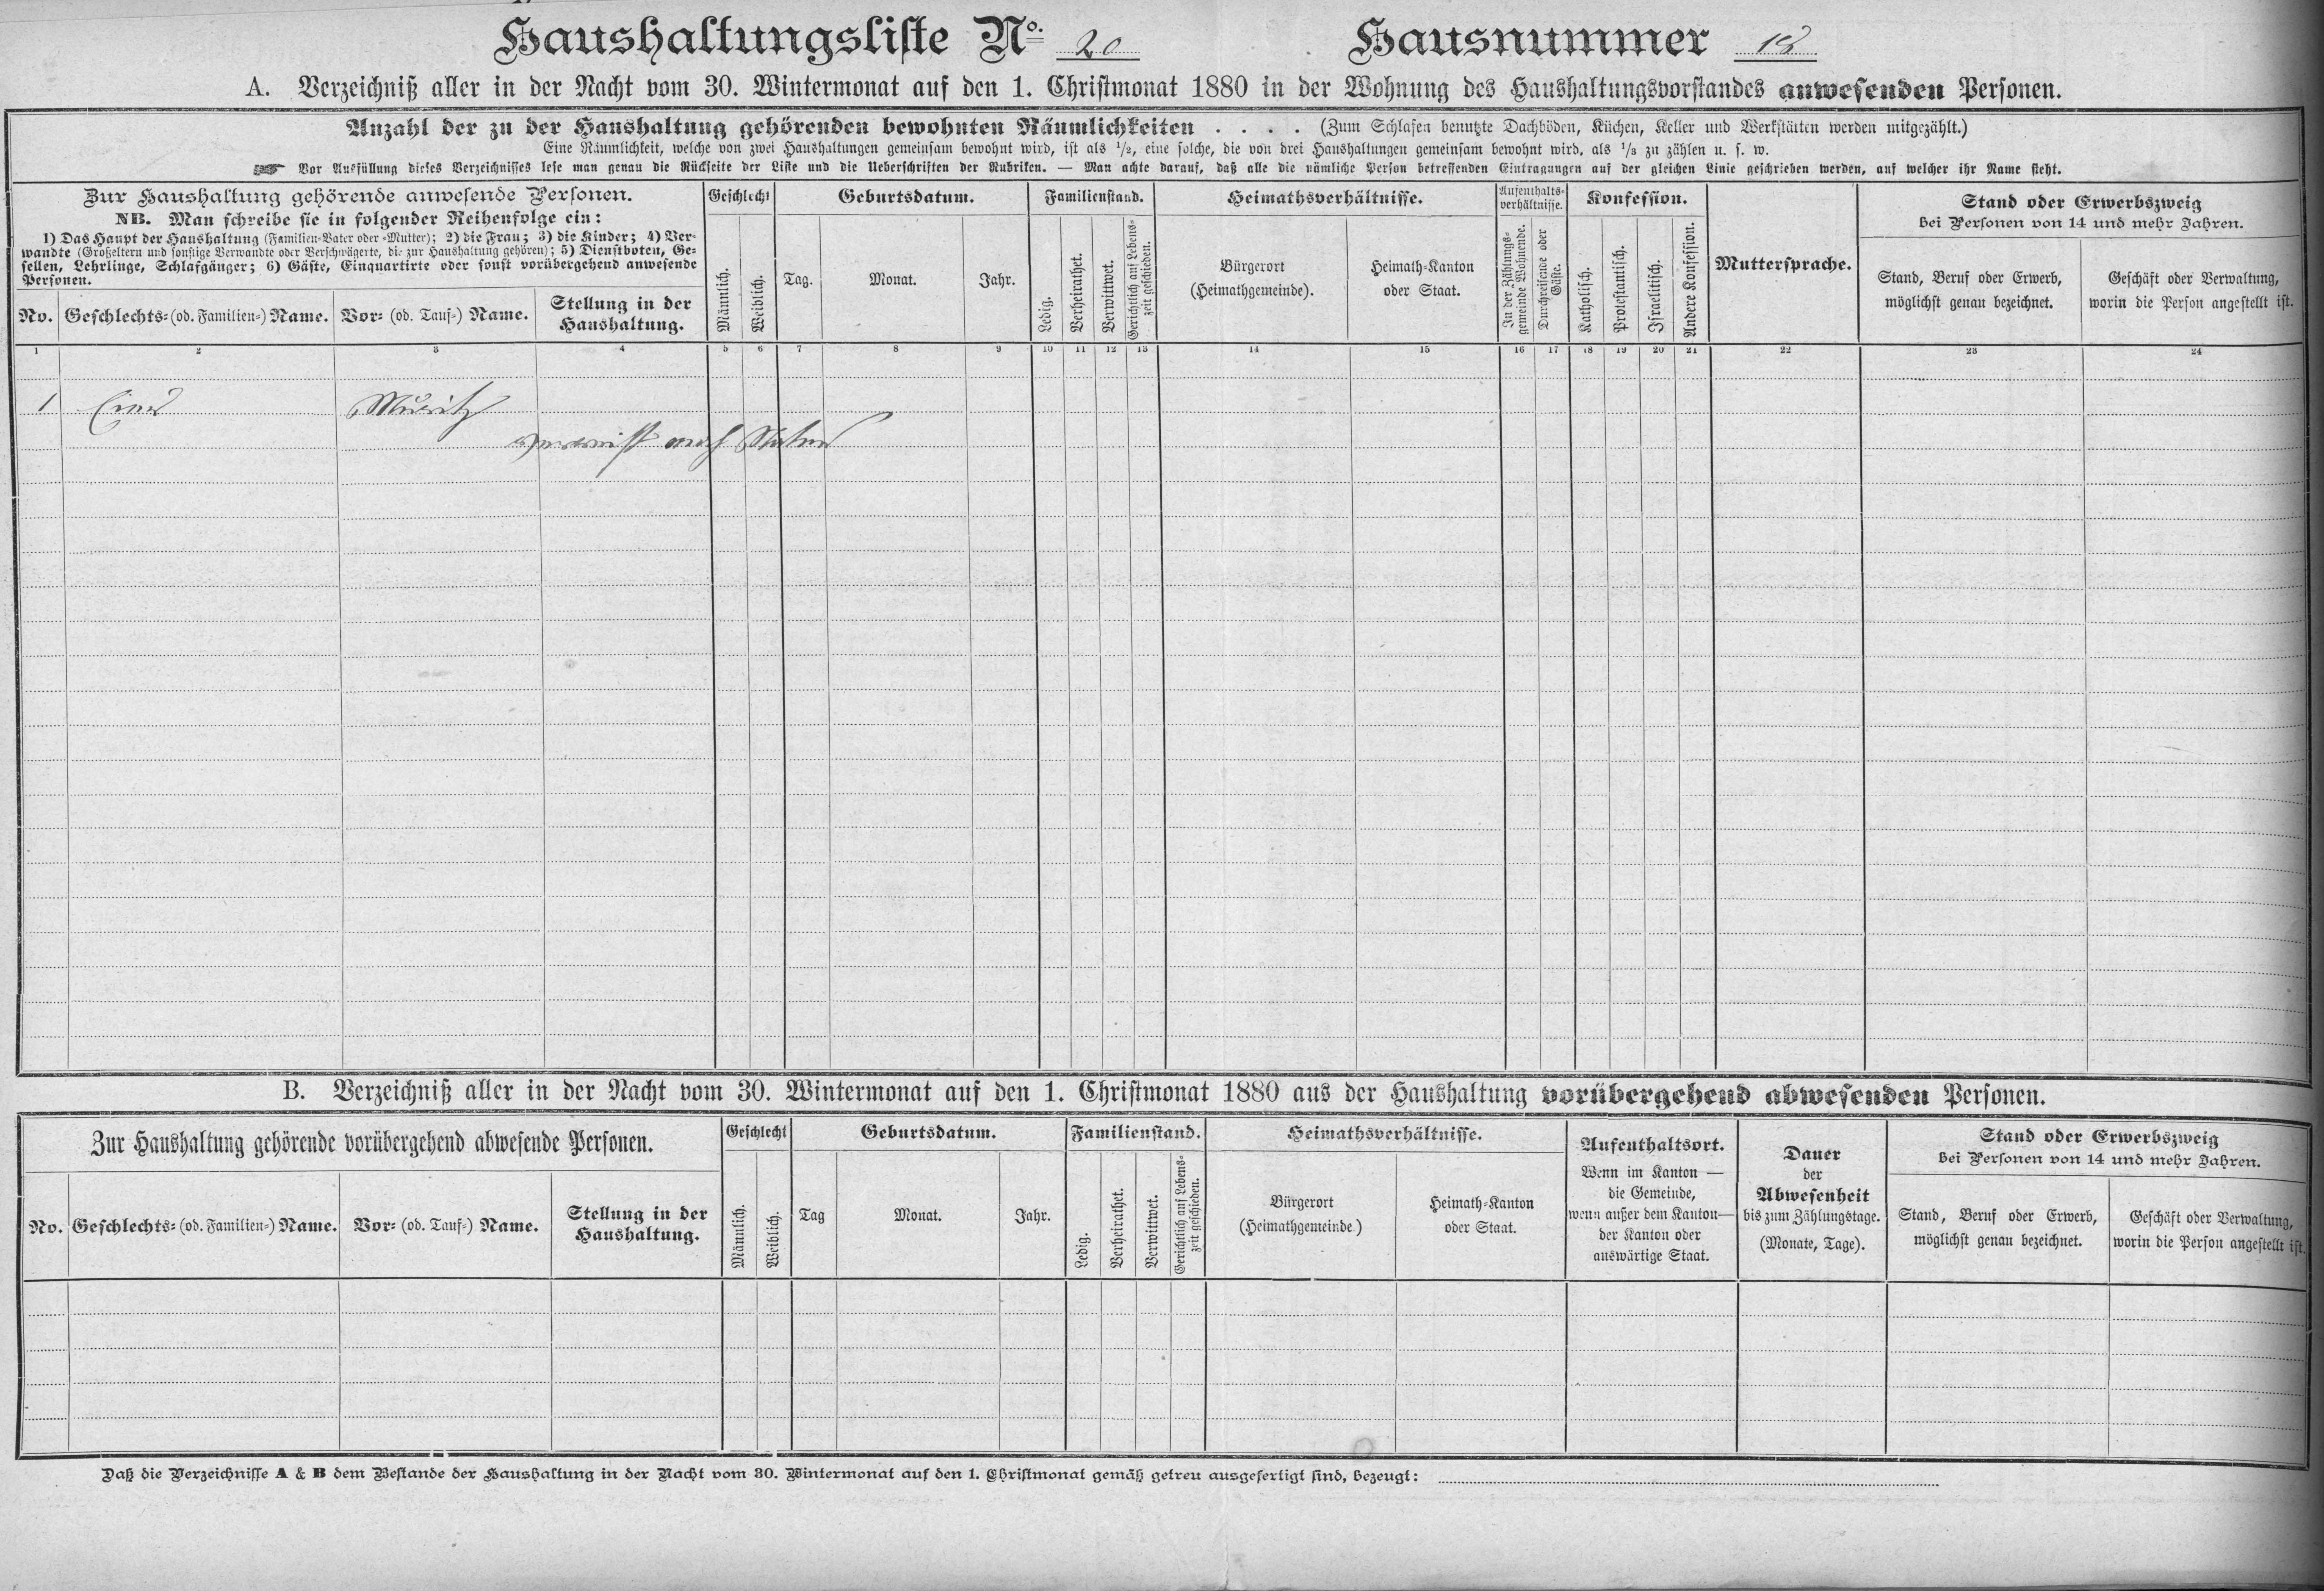 Haushaltungsliste No. 20 Hausnummer 18
A. Verzeichniß aller in der Nacht vom 30. Wintermonat auf den 1. Christmonat 1880 in der Wohnung des Haushaltungsvorstandes anwesenden Personen.
Anzahl der zu der Haushaltung gehörenden bewohnten Räumlichkeiten . . . . (Zum Schlafen benutzte Dachböden, Küchen, Keller und Werkstätten werden mitgezählt.)
Eine Räumlichkeit, welche von zwei Haushaltungen gemeinsam bewohnt wird, ist als 1/2, eine solche, die von drei Haushaltungen gemeinsam bewohnt wird, als 1/3 zu zählen u. s. w.
☞ Vor Ausfüllung dieses Verzeichnisses lese man genau die Rückseite der Liste und die Ueberschriften der Rubriken. — Man achte darauf, daß alle die nämliche Person betreffenden Eintragungen auf der gleichen Linie geschrieben werden, auf welcher ihr Name steht.
Zur Haushaltung gehörende anwesende Personen.
NB. Man schreibe sie in folgender Reihenfolge ein:
1) Das Haupt der Haushaltung (Familien-Vater oder -Mutter); 2) die Frau; 3) die Kinder; 4) Ver-
wandte (Großeltern und sonstige Verwandte oder Verschwägerte, die zur Haushaltung gehören); 5) Dienstboten, Ge-
sellen, Lehrlinge, Schlafgänger; 6) Gäste, Einquartirte oder sonst vorübergehend anwesende
Personen.
No.
Geschlechts- (od. Familien-) Name.
Vor- (od. Tauf-) Name.
Stellung in der
Haushaltung.
Geschlecht
Männlich.
Weiblich.
Geburtsdatum.
Tag.
Monat.
Jahr.
Familienstand.
Ledig.
Verheirathet.
Verwittwet.
Gerichtlich auf Lebens-
zeit geschieden.
Heimathsverhältnisse.
Bürgerort
(Heimathgemeinde).
Heimath-Kanton
oder Staat.
Aufenthalts-
verhältnisse.
In der Zählungs-
gemeinde Wohnende.
Durchreisende oder
Gäste.
Konfession.
Katholisch.
Protestantisch.
Israelitisch.
Andere Konfession.
Muttersprache.
Stand oder Erwerbszweig
bei Personen von 14 und mehr Jahren.
Stand, Beruf oder Erwerb,
möglichst genau bezeichnet.
Geschäft oder Verwaltung,
worin die Person angestellt ist.
1 2 3 4 5 6 7 8 9 10 11 12 13 14 15 16 17 18 19 20 21 22 23 24
1 Moritz
verreist nach
B. Verzeichniß aller in der Nacht vom 30. Wintermonat auf den 1. Christmonat 1880 aus der Haushaltung vorübergehend abwesenden Personen.
Zur Haushaltung gehörende vorübergehend abwesende Personen.
No.
Geschlechts- (od. Familien-) Name.
Vor- (od. Tauf-) Name.
Stellung in der
Haushaltung.
Geschlecht
Männlich.
Weiblich.
Geburtsdatum.
Tag
Monat.
Jahr.
Familienstand.
Ledig.
Verheirathet.
Verwittwet.
Gerichtlich auf Lebens-
zeit geschieden.
Heimathsverhältnisse.
Bürgerort
(Heimathgemeinde)
Heimath-Kanton
oder Staat.
Aufenthaltsort.
Wenn im Kanton —
die Gemeinde,
wenn außer dem Kanton—
der Kanton oder
auswärtige Staat.
Dauer
der
Abwesenheit
bis zum Zählungstage.
(Monate, Tage).
Stand oder Erwerbszweig
bei Personen von 14 und mehr Jahren.
Stand, Beruf oder Erwerb,
möglichst genau bezeichnet.
Geschäft oder Verwaltung,
worin die Person angestellt ist.
Daß die Verzeichnisse A & B dem Bestande der Haushaltung in der Nacht vom 30. Wintermonat auf den 1. Christmonat gemäß getreu ausgefertigt sind, bezeugt: